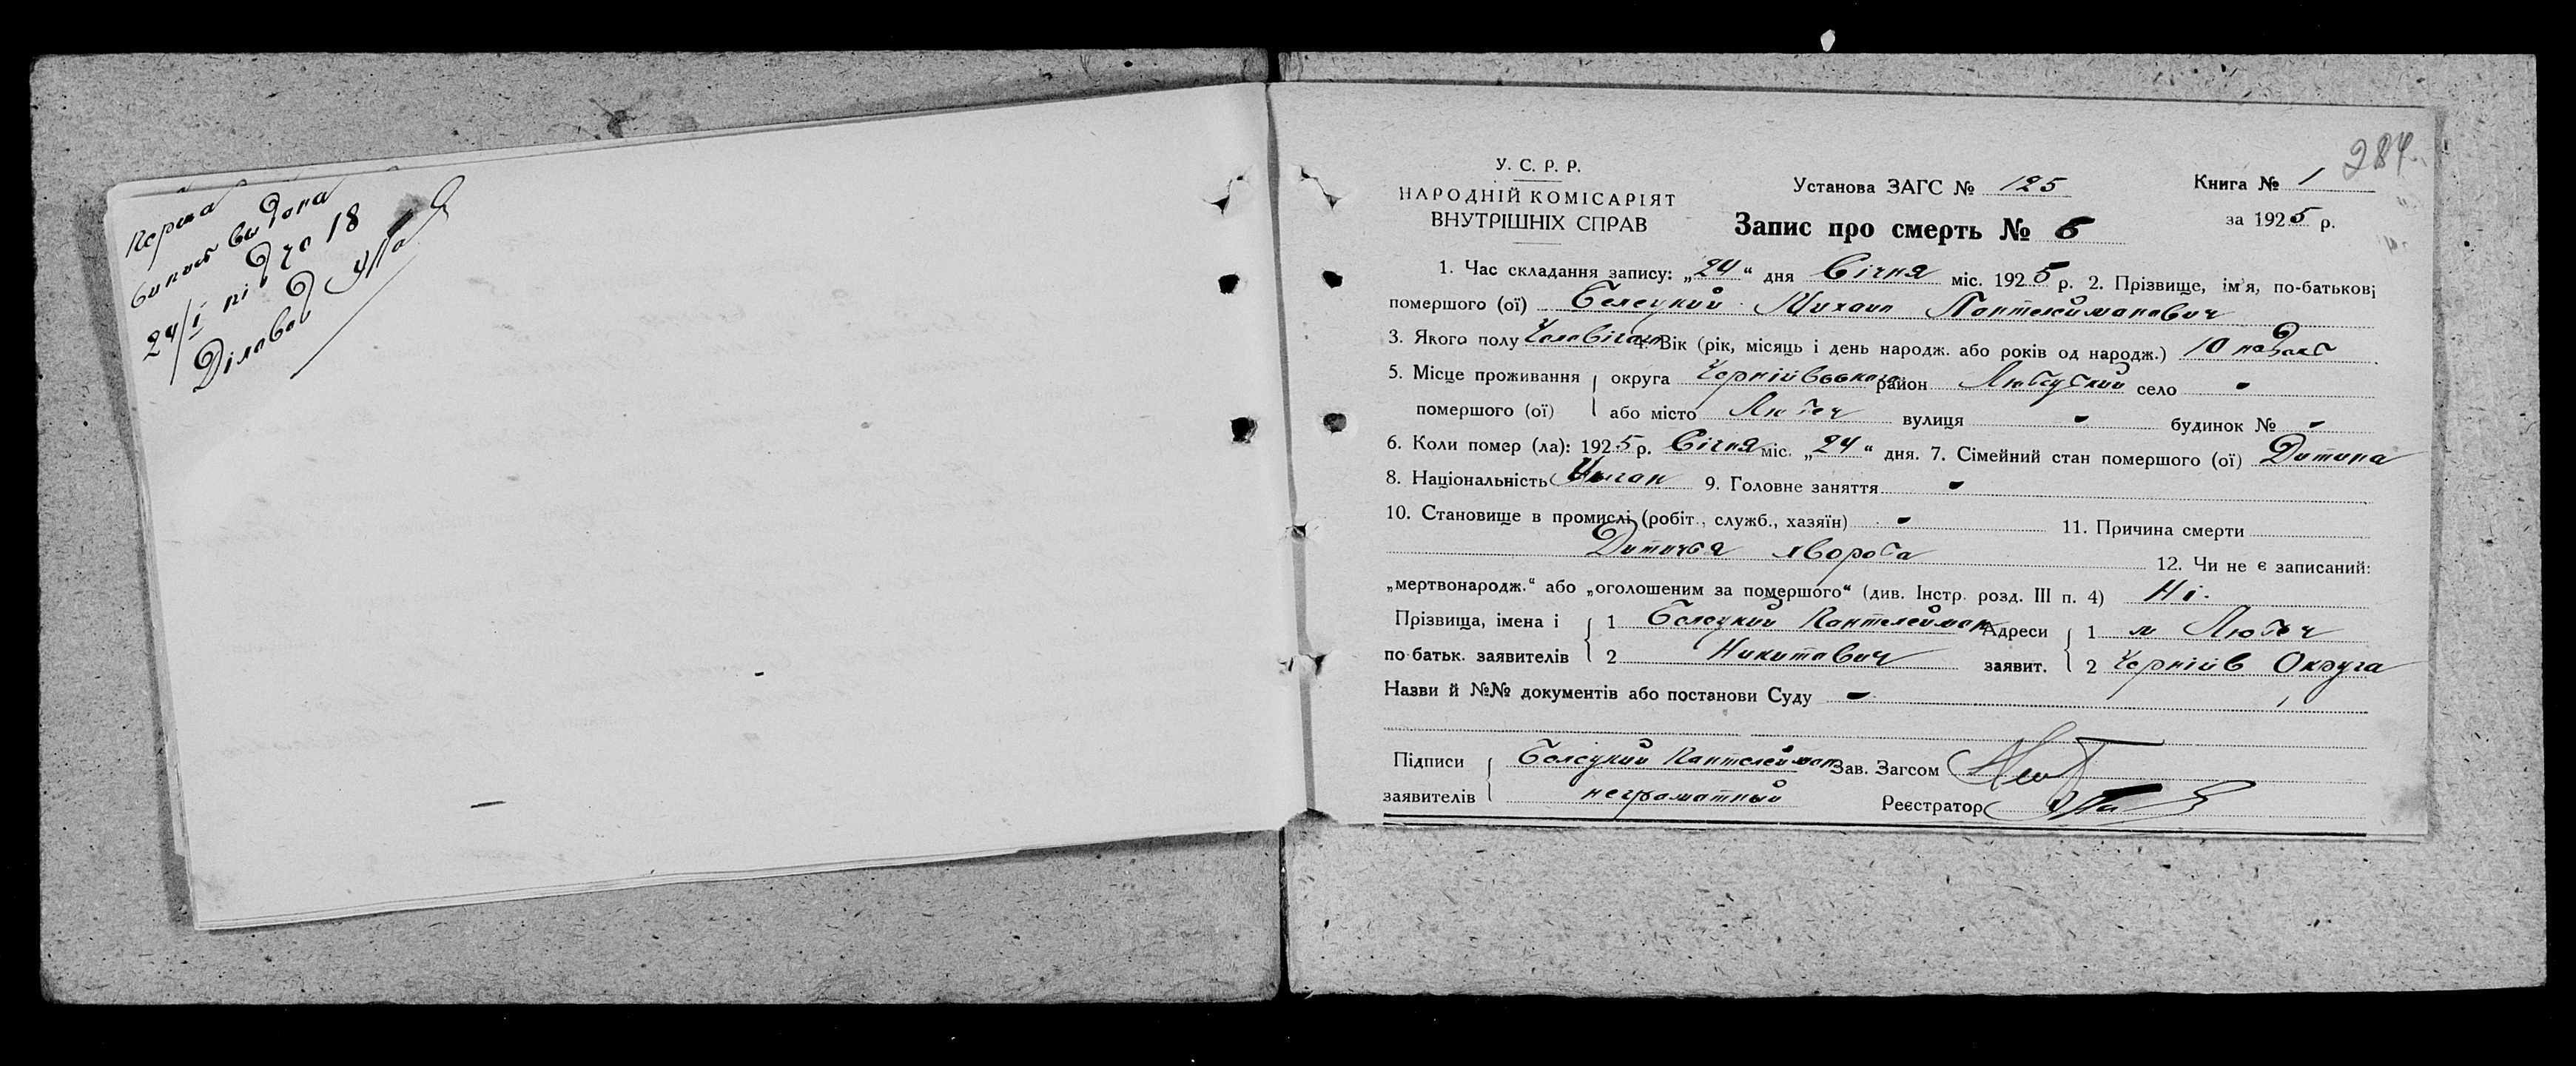 Перша
випись видана
24/I під No 18
Діловод
284
У. С. Р. Р.
НАРОДНІЙ КОМІСАРІЯТ
ВНУТРІШНІХ СПРАВ
Установа ЗАГС № 125
Книга № 1
Запис про смерть № 6
за 1925 р.
1. Час складання запису: „24“ дня Січня міс. 1925 р. 2. Прізвище, ім'я, по-батькові
помершого (ої) Белецкий Михаил Пантелеймонович
3. Якого полу Чоловічого 4. Вік (рік, місяць і день народж. або років од народж.) 10 неділь
5. Місце проживання округа Чернігівського район Любецкий село -
помершого (ої) або місто Любеч вулиця - будинок № -
6. Коли помер (ла): 1925 р. Січня міс. „24“ дня. 7. Сімейний стан помершого (ої) Дитина
8. Національність Цыган 9. Головне заняття -
10. Становище в промислі (робіт., служб., хазяїн) - 11. Причина смерти
Дитячья хвороба 12. Чи не є записаний:
„мертвонародж.“ або „оголошеним за помершого“ (див. Інстр. розд. III п. 4) Ні.
Прізвища, імена і 1 Белецкий Пантелеймон Адреси 1 м Любеч
по-батьк. заявителів 2 Никитович заявит. 2 Черніів Округа
Назви й №№ документів або постанови Суду -
Підписи Белецкий Пантелеймон Зав. Загсом
заявителів неграматный Реєстратор